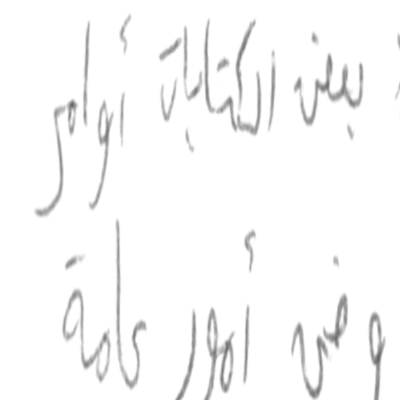 : بعض الكتابات أوامر
وفي أمور عامة